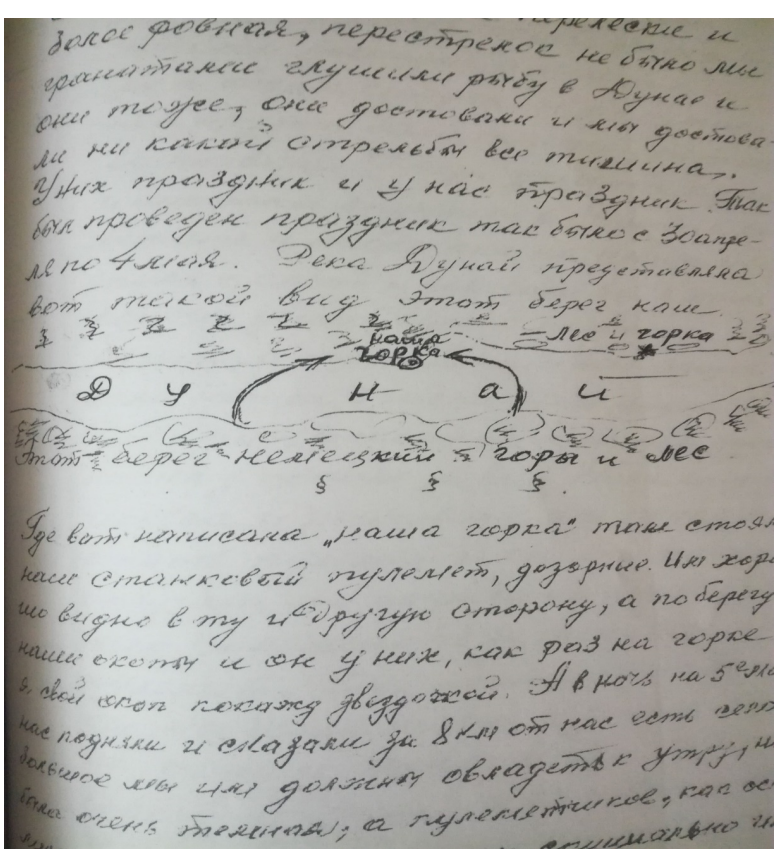 перелески и
более ровная, перестрелок не было мы
гранатами глушили рыбу в Дунае и
они тоже, они доставали и мы достова-
ли ни какой стрельбы все тишина,.
У них праздник и у нас праздник. Так
был проведен праздник так было с 30 апре-
ля по 4 мая. Река Дунай представляла
вот такой вид этот берег наш
лес и горка
наша
горка
Д У Н А Й
этот берег немецкий горы и лес
Где вот написана „наша горка" там стоял
наш станковый пулемет, дозорние. Им хоро-
шо видно в ту и другую сторону, а по берегу
наши окопы и он у них, как раз на горке
я, свой окоп покажу звездочкой. А в ночь на 5е ма
нас подняли и сказали за 8 км от нас есть село
большое мы им должны овладеть к утру,
была очень темная, а пулеметчиков, как
специально